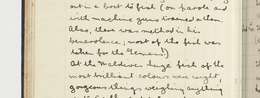 out in a boat to fish (on parole and
with machine guns trained on them.
Also, there was method in his
benevolence, most of the fish was
taken for the Germans!)
At the Maldives huge fish of the
most brilliant colours were caught,
gorgeous things, weighing anything